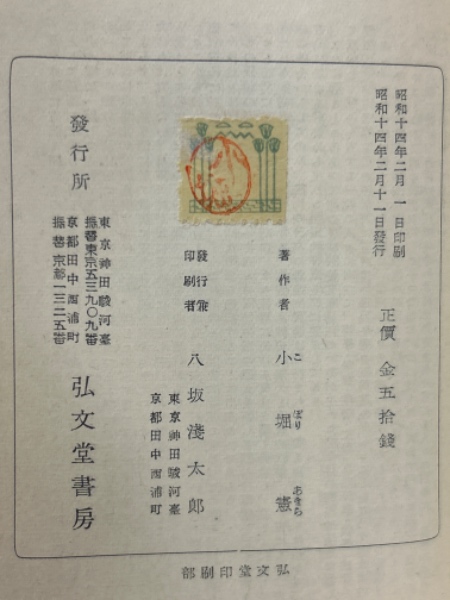 昭和十四年二月一日印刷
昭和十四年二月十一日發行
正價 金五拾錢
著作者 小堀憲
こ ぼり あきら
發行兼
印刷者 八坂淺太郎
東京神田駿河臺
京都田中西浦町
發行所 弘文堂書房
東京神田駿河臺
振替東京五三九〇九番
京都田中西浦町
振替京都一三二五番
弘文堂印刷部